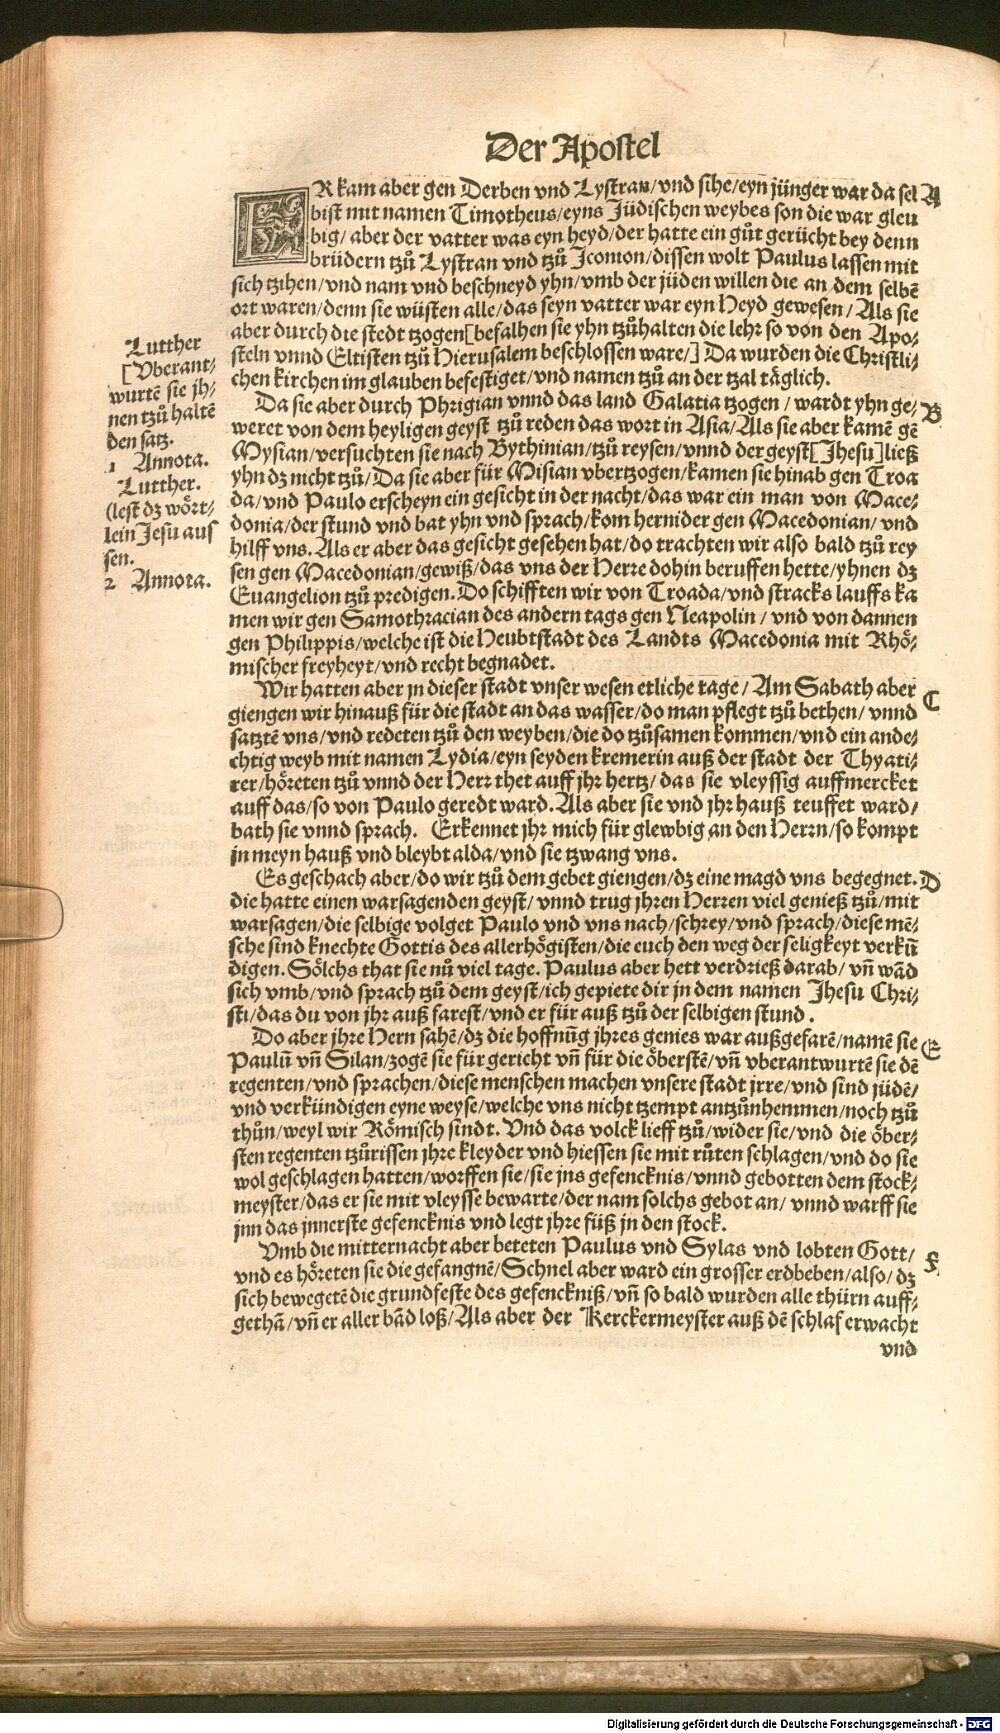 Der Apostel
ER kam aber gen Derben vnd Lystran/vnd sihe/eyn jünger war da sel A
bist mit namen Timotheus/eyns Jüdischen weybes son die war gleu
big/ aber der vatter was eyn heyd/der hatte ein gůt gerücht bey denn
brüdern tzů Lystran vnd tzů Iconion/dissen wolt Paulus lassen mit
sich tzihen/vnd nam vnd beschneyd yhn/vmb der jüden willen die an dem selbē
ort waren/denn sie wüsten alle/das seyn vatter war eyn Heyd gewesen/Als sie
aber durch die stedt tzogen[befalhen sie yhn tzůhalten die lehr so von den Apo⸗
steln vnnd Eltisten tzů Hierusalem beschlossen ware/] Da wurden die Christli⸗
chen kirchen im glauben befestiget/vnd namen tzů an der tzal täglich.
Da sie aber durch Phrigian vnnd das land Galatia tzogen/ wardt yhn ge⸗ B
weret von dem heyligen geyst tzů reden das wort in Asia/Als sie aber kamē gē
Mysian/versuchten sie nach Bythinian/tzů reysen/vnnd der geyst[Jhesu]ließ
yhn dz nicht tzů/Da sie aber für Misian vbertzogen/kamen sie hinab gen Troa
da/vnd Paulo erscheyn ein gesicht in der nacht/das war ein man von Mace⸗
donia/der stund vnd bat yhn vnd sprach/kom hernider gen Macedonian/ vnd
hilff vns. Als er aber das gesicht gesehen hat/do trachten wir also bald tzů rey
sen gen Macedonian/gewiß/das vns der Herre dohin beruffen hette/yhnen dz
Euangelion tzů predigen. Do schifften wir von Troada/vnd stracks lauffs ka
men wir gen Samothracian des andern tags gen Neapolin/ vnd von dannen
gen Philippis/welche ist die Heubtstadt des Landts Macedonia mit Rhö⸗
mischer freyheyt/vnd recht begnadet.
Wir hatten aber jn dieser stadt vnser wesen etliche tage/ Am Sabath aber
giengen wir hinauß für die stadt an das wasser/do man pflegt tzů bethen/ vnnd C
satztē vns/vnd redeten tzů den weyben/die do tzůsamen kommen/vnd ein ande⸗
chtig weyb mit namen Lydia/eyn seyden kremerin auß der stadt der Thyati⸗
rer/höreten tzů vnnd der Herr thet auff jhr hertz/ das sie vleyssig auffmercket
auff das/so von Paulo geredt ward. Als aber sie vnd jhr hauß teuffet ward/
bath sie vnnd sprach. Erkennet jhr mich für glewbig an den Herrn/so kompt
jn meyn hauß vnd bleybt alda/vnd sie tzwang vns.
Es geschach aber/do wir tzů dem gebet giengen/dz eine magd vns begegnet. D
die hatte einen warsagenden geyst/ vnnd trug jhren Herren viel genieß tzů/mit
warsagen/die selbige volget Paulo vnd vns nach/schrey/vnd sprach/diese mē⸗
sche sind knechte Gottis des allerhögisten/die euch den weg der seligkeyt verkū
digen. Sölchs that sie nů viel tage. Paulus aber hett verdrieß darab/ vñ wād
sich vmb/vnd sprach tzů dem geyst/ich gepiete dir jn dem namen Jhesu Chri⸗
sti/das du von jhr auß farest/vnd er für auß tzů der selbigen stund.
Do aber jhre Hern sahē/dz die hoffnūg jhres genies war außgefarē/namē sie E
Paulū vñ Silan/zogē sie für gericht vñ für die öberstē/vñ vberantwurtē sie dē
regenten/vnd sprachen/diese menschen machen vnsere stadt jrre/vnd sind jüdē/
vnd verkündigen eyne weyse/welche vns nicht tzempt antzůnhemmen/noch tzů
thůn/weyl wir Römisch sindt. Vnd das volck lieff tzů/wider sie/vnd die öber⸗
sten regenten tzůrissen jhre kleyder vnd hiessen sie mit růten schlagen/vnd do sie
wol geschlagen hatten/worffen sie/sie jns gefencknis/vnnd gebotten dem stock⸗
meyster/das er sie mit vleysse bewarte/der nam solchs gebot an/ vnnd warff sie
jnn das jnnerste gefencknis vnd legt jhre füß jn den stock.
Vmb die mitternacht aber beteten Paulus vnd Sylas vnd lobten Gott/
vnd es höreten sie die gefangnē/Schnel aber ward ein grosser erdbeben/also/dz F
sich bewegetē die grundfeste des gefenckniß/vñ so bald wurden alle thürn auff⸗
gethā/vñ er aller bād loß/Als aber der Kerckermeyster auß dē schlaf erwacht
vnd
Lutther
[Vberant⸗
wurtē sie jh⸗
nen tzů haltē
den satz.
1 Annota.
Lutther.
(lest dz wört⸗
lein Jesu aus
sen.
2 Annota.
Digitalisierung gefördert durch die Deutsche Forschungsgemeinschaft - DFG